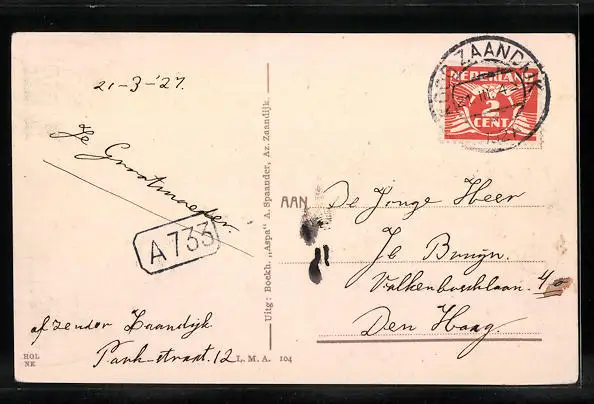 21-3-'27.
Je Grootmoeder.
A 733
afzender Zaandijk
Parkstraat. 12
HOL
NE
L. M. A. 104
Uitg: Boekh. „Aspa" A. Spaander, Az. Zaandijk.
ZAANDIJK
NEDERLAND
2
CENT
AAN
De Jonge Heer
Jb Bruijn.
Valkenboschlaan. 40
Den Haag.